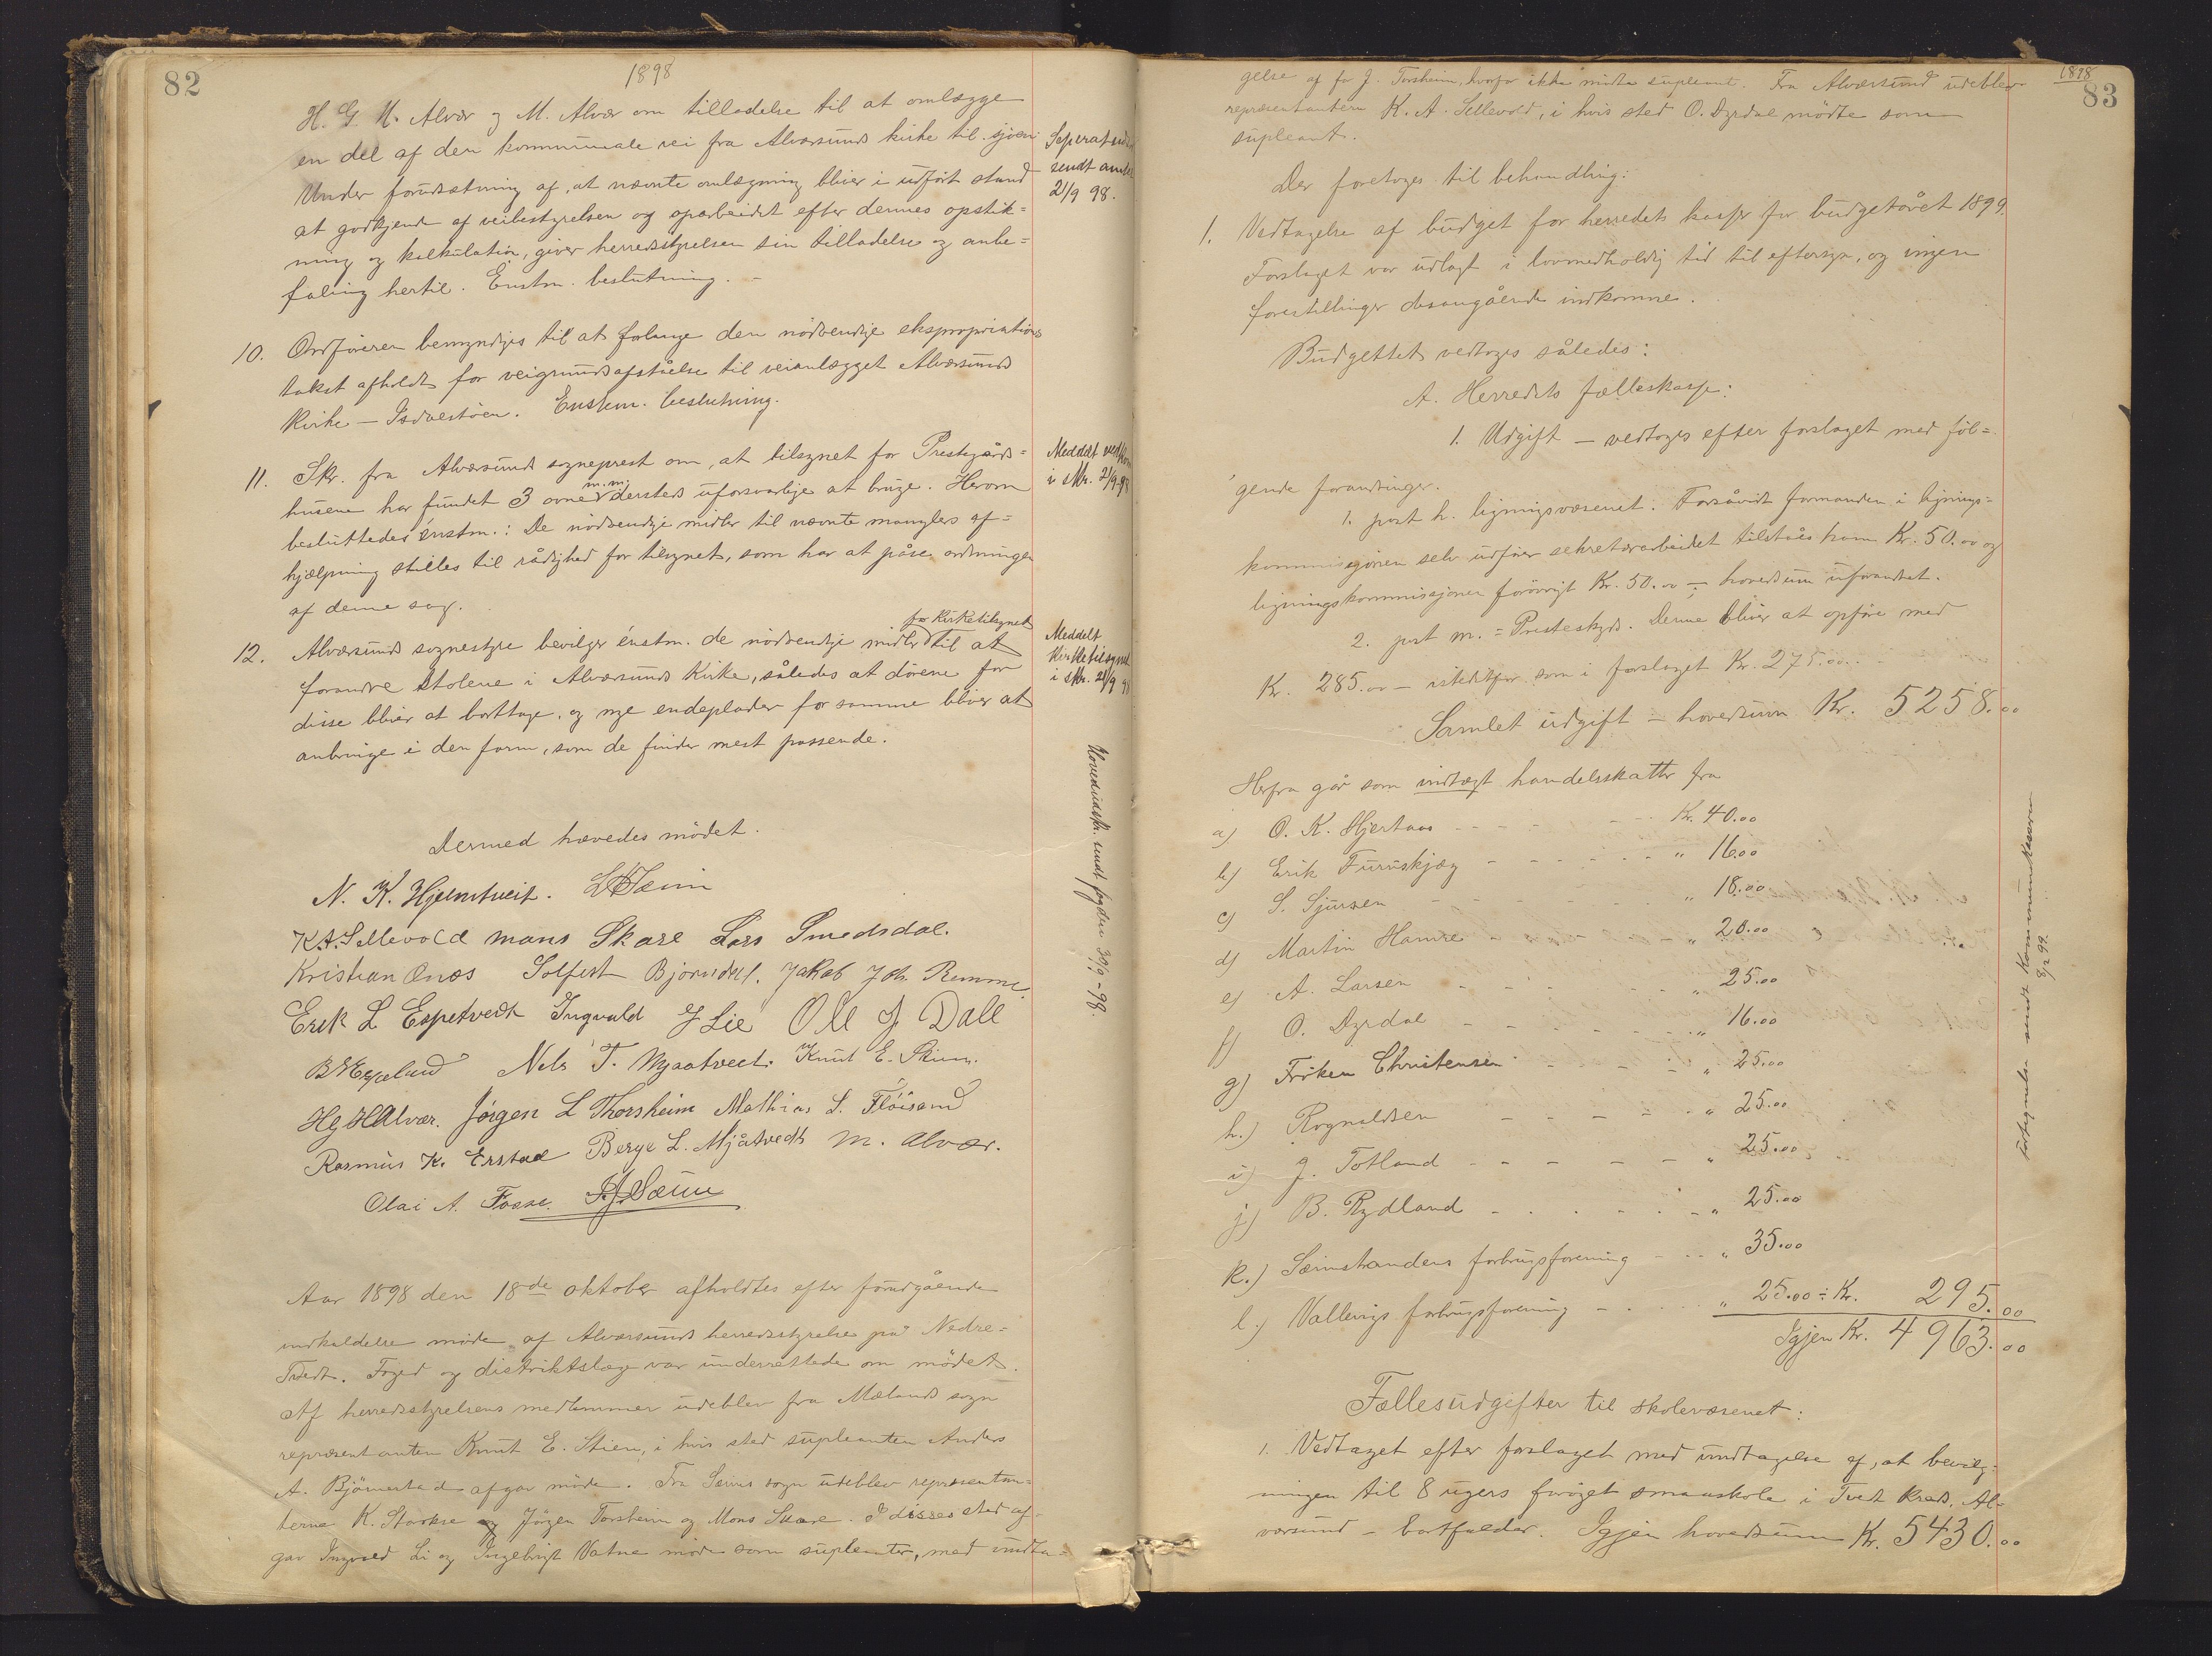 82
1898
H. G. H. Alvær og M. Alvær om tilladelse til at omlægge
en del af den kommunale vei fra Alværsunds kirke til sjøen
Under forudsætning af, at nævnte omlægning bliver i udført stand
at godkjende af veibestyrelsen og oparbeidet efter dennes opstik=
ning og kalkulation, giver herredsstyrelsen sin tilladelse og anbe=
faling hertil. Enstm. beslutning. -
Seperatuds
sendt amtet
21/9 98.
10. Ordføreren bemyndiges til at forlange den nødvendige ekspropriations
takst afholdt for veigrundsafståelse til veianlægget Alværsunds
Kirke - Isdalstøen. Enstem. beslutning.
11. Skr. fra Alværsunds sogneprest om, at tilsynet for Prestegårds=
husene har fundet 3 ovne m.m. dersteds uforsvarlige at bruge. Herom
besluttedes énstm.: De nødvendige midler til nævnte manglers af=
hjælpning stilles til rådighed for tilsynet, som har at påse ordningen
af denne sag.
Meddelt vedkom
i skr. 21/9-98
12. Alværsunds sognestyre bevilger énstm. de nødvendige midler for Kirketilsynet til at
forandre stolene i Alværsunds Kirke, således at dørene for
disse bliver at borttage, og nye endeplader for samme bliver at
anbringe i den form, som de finder mest passende.
Meddelt
Kirketilsynet
i skr. 21/9 98
Hovedudskr. sendt fogden 30/9-98.
Dermed hævedes mödet.
N. K. Hjelmtveit. L Sæim
K.A. Sellevold Mons Skare Lars Smedsdal.
Kristian Onæs Solfest Bjørndal. Jakob Joh. Remme.
Erik L Espetvedt Ingvald J Lie Ole J. Dale
B K Espeland Nels T. Mjaatvedt. Knut E. Stien.
H g H Alvær. Jörgen L Thorsheim Mathias S. Flöisand
Rasmus K. Erstad Berge L. Mjåtvedt M. Alvær.
Olai A. Fosse. J. Sæim
Aar 1898 den 18de oktober afholdtes efter forudgående
indkaldelse möde af Alværsunds herredsstyrelse på Nedre=
Tvedt. Foged og distriktslæge var underrettede om mödet.
Af herredsstyrelsens medlemmer udeblev fra Mælands sogn
repræsentanten Knut E. Stien, i hvis sted supleanten Anders
A. Björnestad afgav möde. Fra Seims sogn udeblev repræsentan=
terne K. Storkse og Jörgen Torsheim og Mons Skare. I disses sted af=
gav Ingvald Li og Ingebrigt Vatne möde som supleanter, med undta=
1898
83
gelse af for J. Torsheim, hvorfor ikke mødte supleant. Fra Alværsund udeblev
repræsentanten K. A. Sellevold, i hvis sted O. Dyrdal mödte som
supleant.
Der foretoges til behandling:
1. Vedtagelse af budget for herredets kasser for budgetåret 1899.
Forslaget var udlagt i lovmedholdig tid til eftersyn, og ingen
forestillinger desangående indkomne.
Budgettet vedtoges således:
A. Herredets fælleskasse:
1. Udgift - vedtoges efter forslaget med föl=
gende forandringer.
1. post h. ligningsvæsenet. Forsåvidt formanden i lignings=
kommissjonen selv udfører sekretærarbeidet tilståes ham Kr. 50.00 og
ligningskommissjonen forøvrigt Kr. 50.00 - hovedsum uforandret.
2. post m. = Presteskyds. Denne bliver at opføre med
Kr. 285.00 - istedetfor som i forslaget Kr. 275.00.
Samlet udgift - hovedsum Kr. 5258.00
Herfra går som indtægt handelsskatter fra
a) O. K. Hjertaas - - - Kr. 40.00
b) Erik Furuskjæg - - - " 16.00
c) S. Sjursen - - - " 18.00
d) Martin Hamre - - - " 20.00
e) A. Larsen - - - " 25.00
f) O. Dyrdal - - - " 16.00
g) Fröken Christensen - - - " 25.00
h.) Rognaldsen - - - " 25.00
i) J. Totland - - - " 25.00
j) B. Rydland - - - " 25.00
k.) Sæimstrandens forbrugsforening - - - " 35.00
l.) Vallevigs forbrugsforening - - - " 25.00 = Kr. 295.00
Igjen Kr. 4963.00
Fællesudgifter til skolevæsenet:
1. Vedtaget efter forslaget med undtagelse af, at bevilg=
ningen til 8 ugers forøget smaaskole i Tvedt Kreds, Al=
værsund - bortfalder. Igjen hovedsum Kr. 5430.00
Fortegnelse sendt Kommunekasserer
8/2 99.